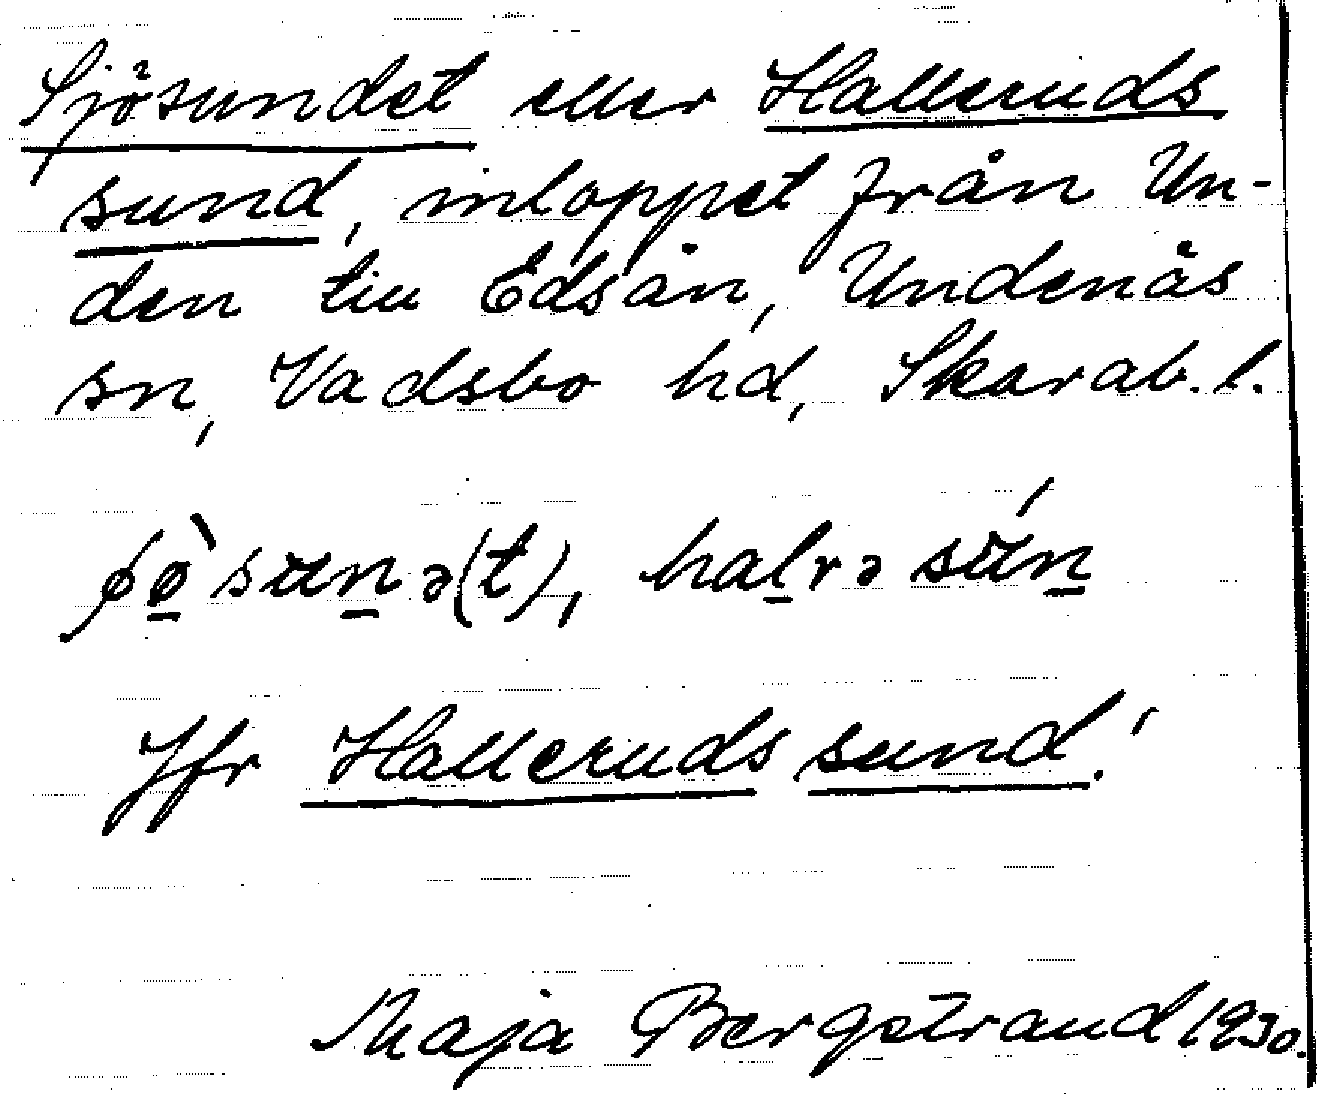 Sjösundet eller Halleruds
sund, inloppet från Un-
den till Edsån, Undenäs
sn, Vadsbo hd, Skarab. l.
Jfr Halleruds sund!
Maja Bergstrand 1930.